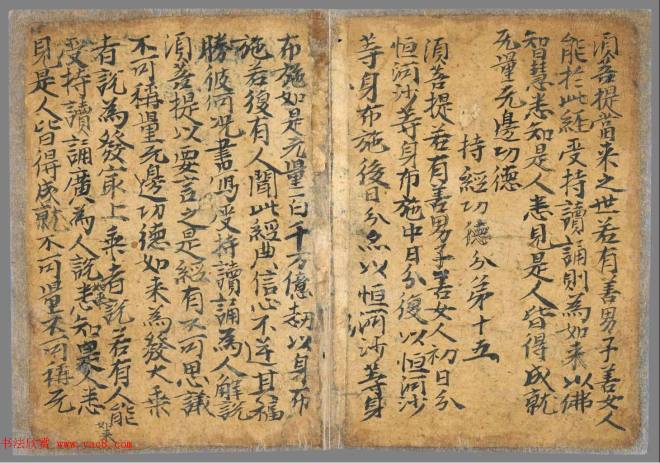 須菩提當来之世若有善男子善女人
能於此經受持讀誦則為如来以佛
智慧悉知是人悉見是人皆得成就
无量无邊功德
持經功德分第十五
須菩提若有善男子善女人初日分
恒河沙等身布施中日分復以恒河沙
等身布施後日分亦以恒河沙等身
布施如是无量百千万億劫以身布
施若後有人聞此經典信心不逆其福
勝彼何況書寫受持讀誦為人解說
須菩提以要言之是經有不可思議
不可稱量无邊功德如来為發大乘
者說為發最上乘者說若有人能
受持讀誦廣為人說如来悉知是人悉
見是人皆得成就不可量不可稱无
如来
书法欣赏 www.yac8.com